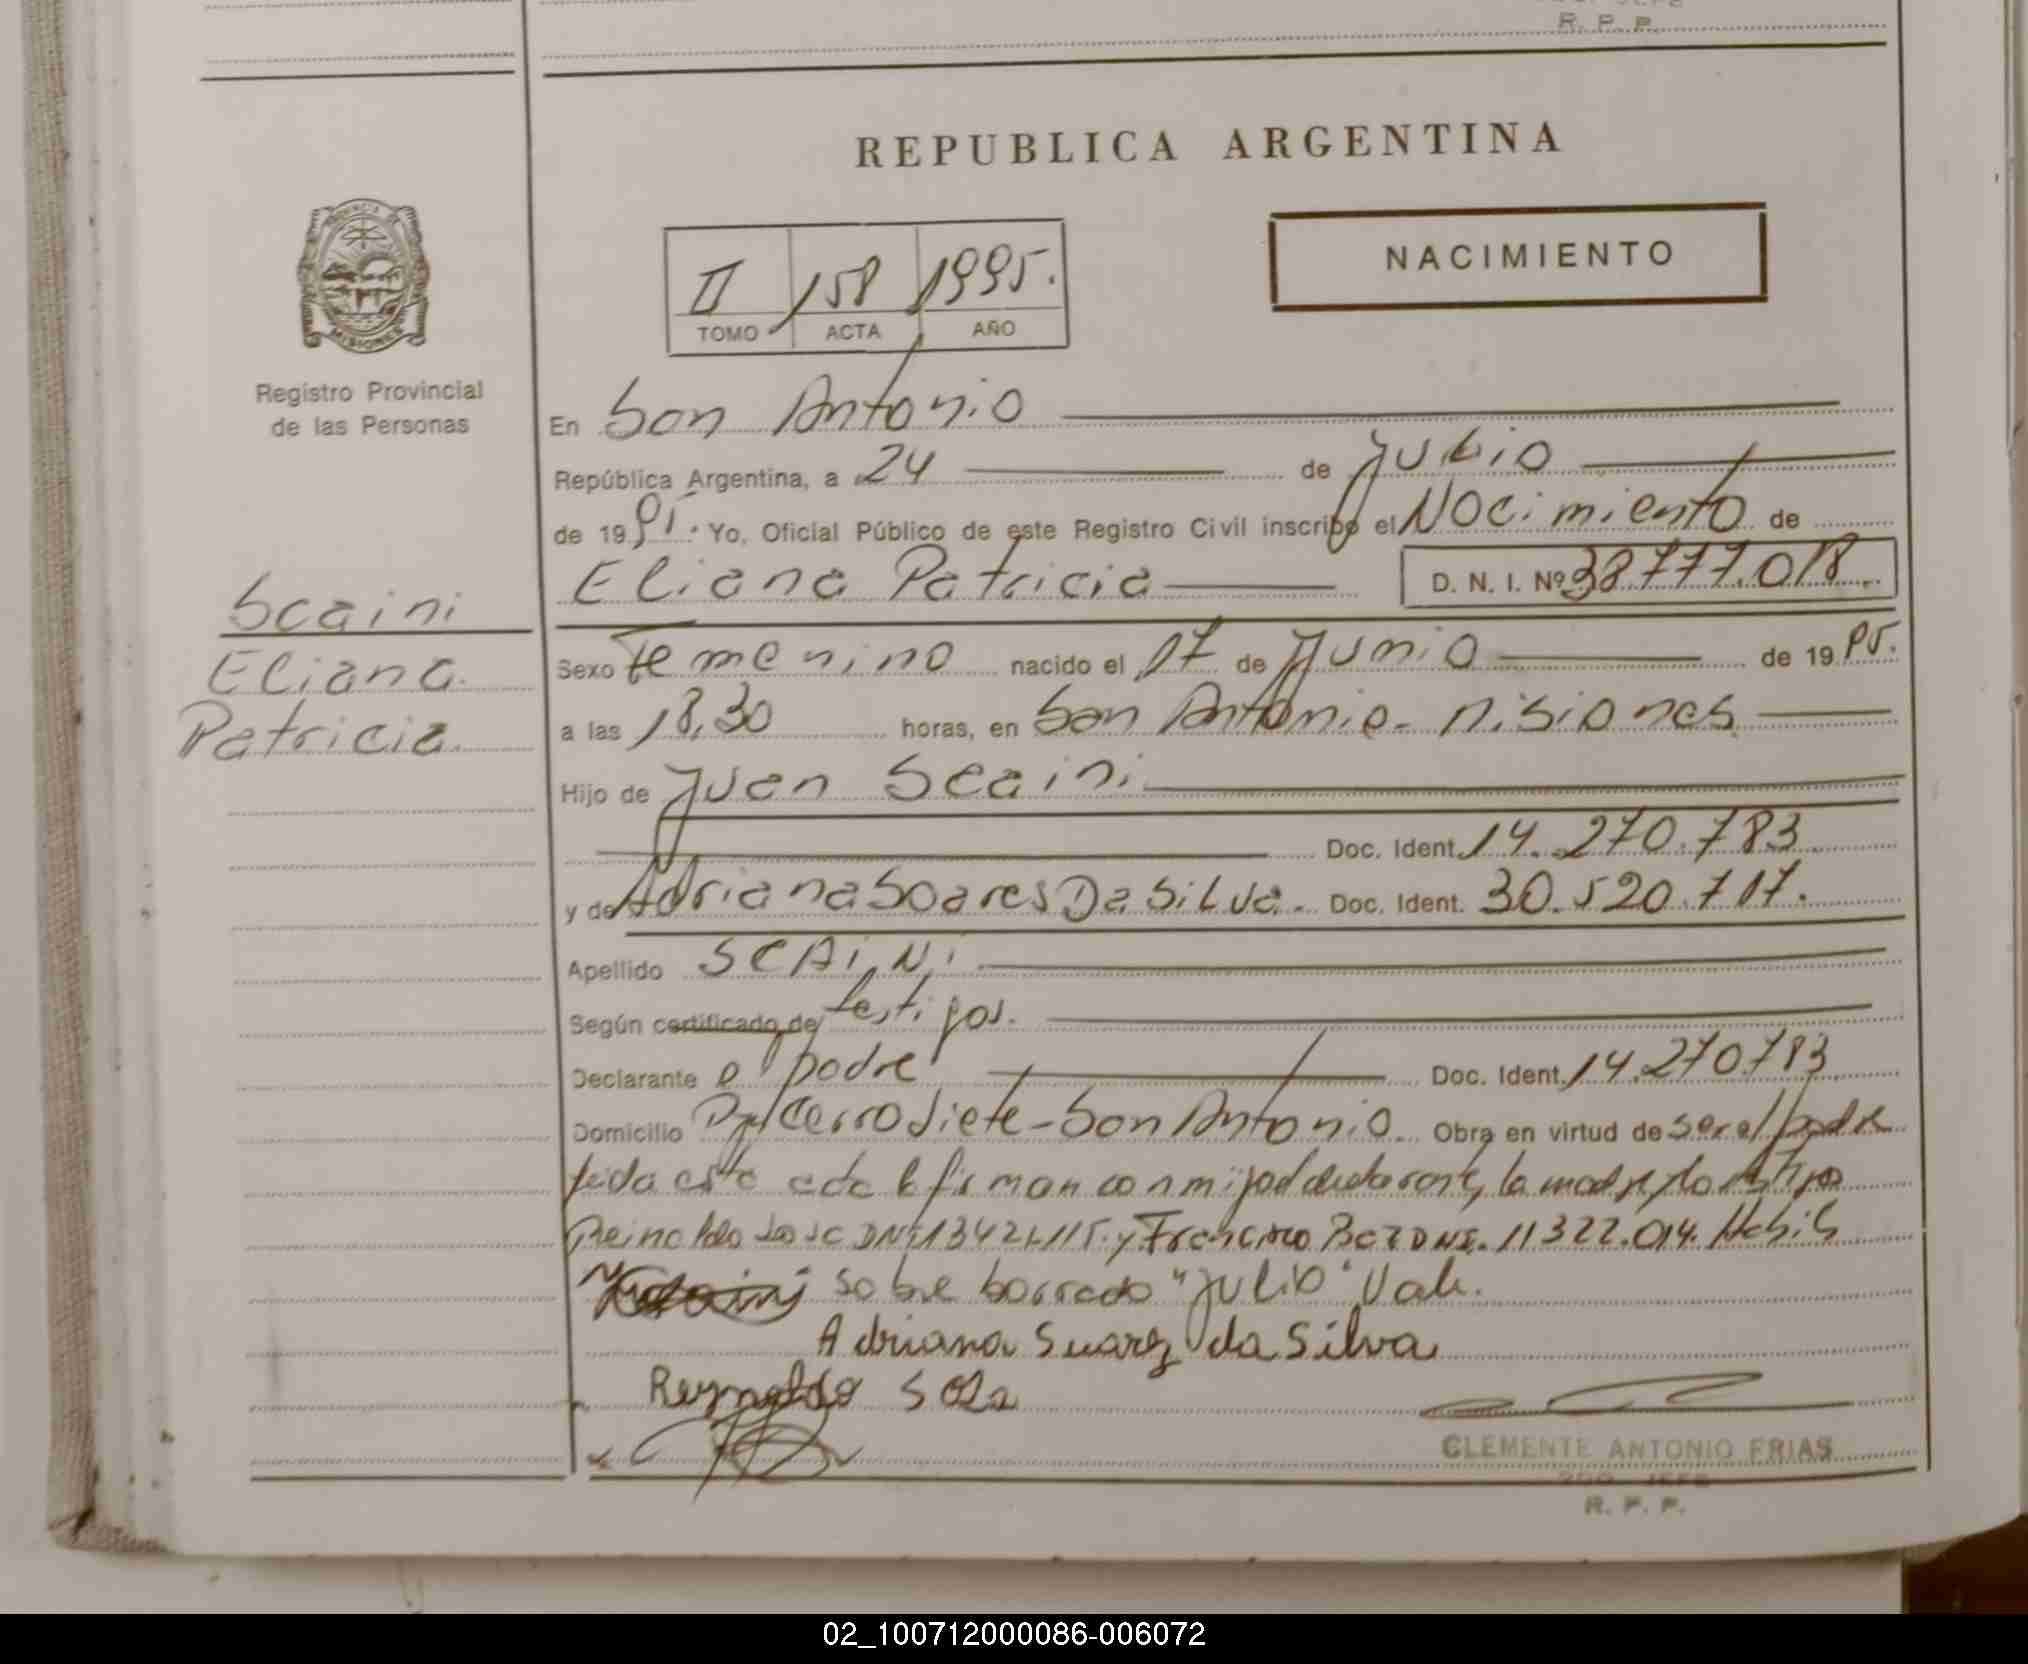 R. P. P.
REPUBLICA ARGENTINA
NACIMIENTO
II 158 1995.
TOMO ACTA AÑO
PROVINCIA DE
MISIONES
Registro Provincial
de las Personas
En San Antonio
República Argentina, a 24 de Julio
de 1995. Yo, Oficial Público de este Registro Civil inscribo el Nacimiento de
Eliana Patricia D. N. I. Nº 38.777.018
Scaini
Eliana
Patricia
Sexo Femenino nacido el 17 de Junio de 1995.
a las 18,30 horas, en San Antonio - Misiones
Hijo de Juan Scaini
Doc. Ident. 14.270.783
y de Adriana Soares Da Silva. Doc. Ident. 30.520.717.
Apellido SCAINI
Según certificado de testigos.
Declarante el padre Doc. Ident. 14.270.783
Domicilio Cerro Siete - San Antonio. Obra en virtud de ser el padre
leida este acta firman conmigo el declarante, la madre y los testigos
Reinaldo DNI 13421.115. y Francisco DNI. 11322.014.
sobre borrado "Julio" Vale.
Adriana Suarez da Silva
Reynoldo Sosa
CLEMENTE ANTONIO FRIAS
2DO. JEFE
R. P. P.
02_100712000086-006072